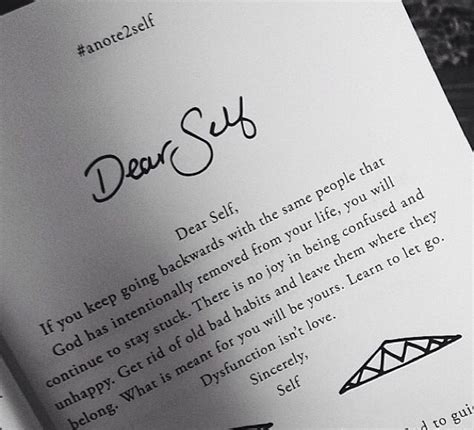 #anote2self
Dear Self
Dear Self,
If you keep going backwards with the same people that
God has intentionally removed from your life, you will
continue to stay stuck. There is no joy in being confused and
unhappy. Get rid of old bad habits and leave them where they
belong. What is meant for you will be yours. Learn to let go.
Dysfunction isn't love.
Sincerely,
Self
d to gui